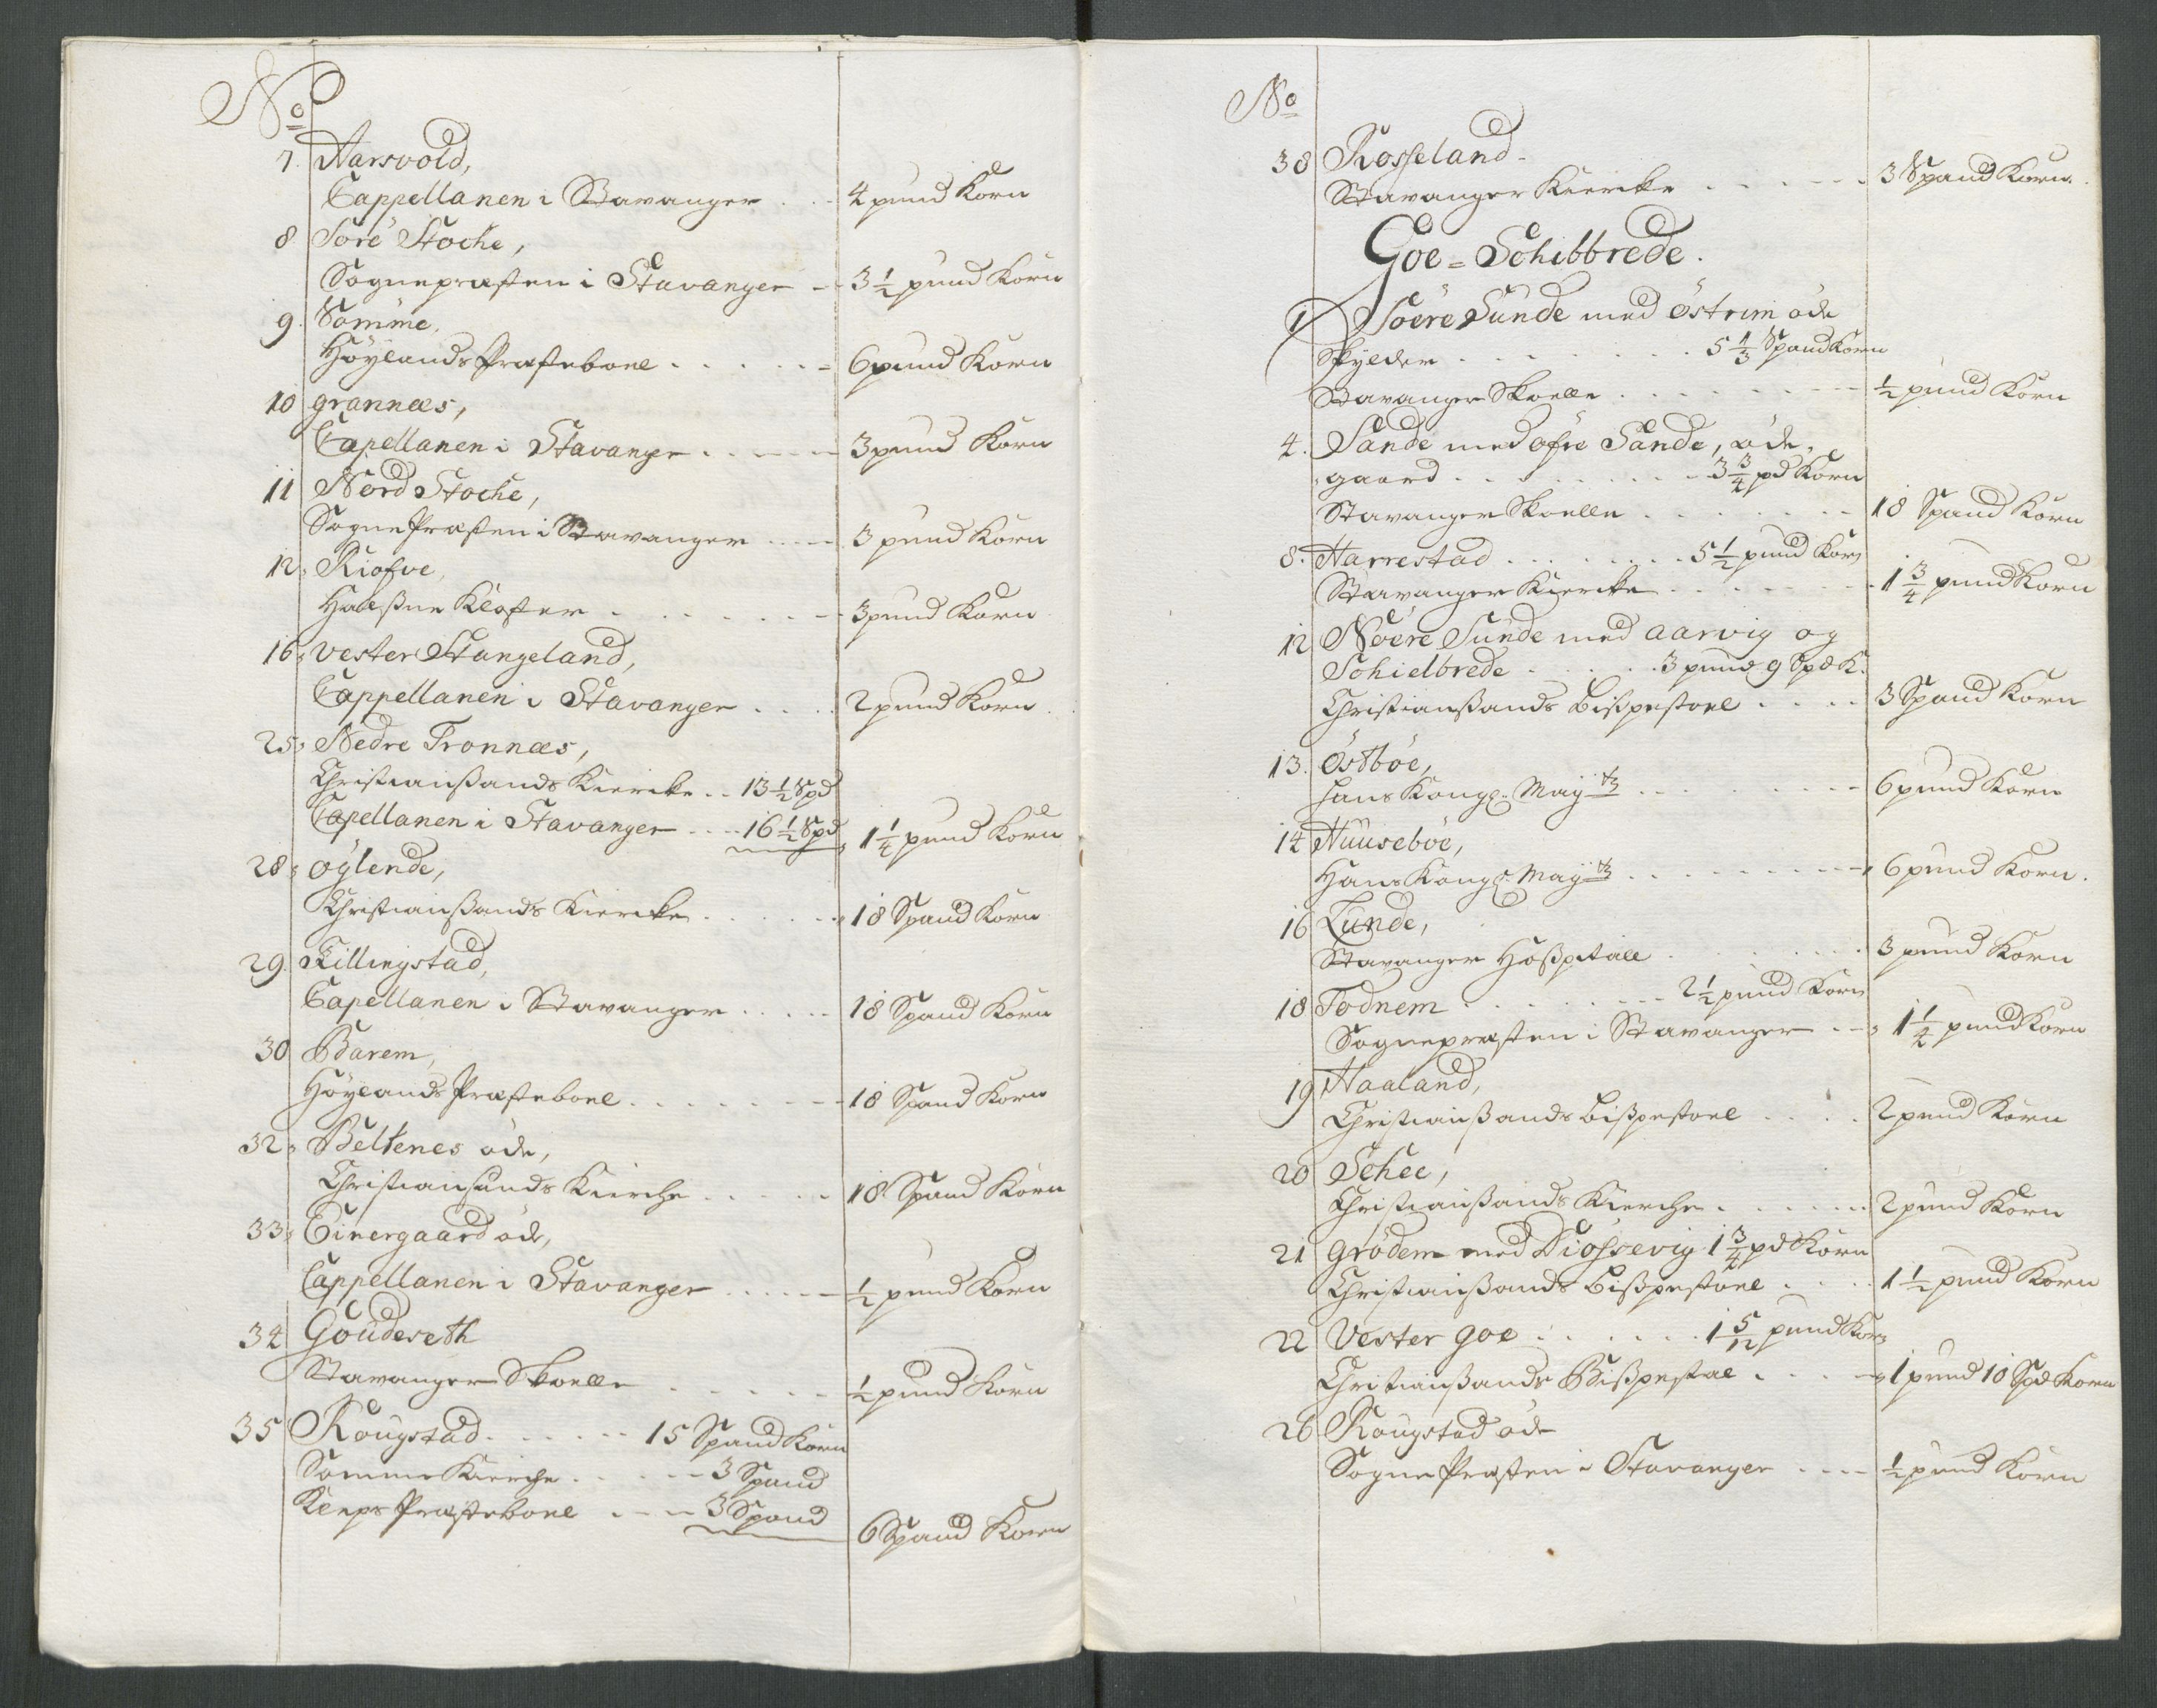 No
7. Aarsvold,
Cappellanen i Stavanger . . - 4 pund Korn
8 Sore Stoche,
Sognepræsten i Stavanger - - 3 1/2 pund Korn
9. Somme,
Höylands Præsteboel . . . . . - 6 pund Korn
10 grannæs,
Capellanen i Stavanger . . - - - 3 pund Korn
11 Nord Stoche,
Sogne Præsten i Stavanger . . - - 3 pund Korn
12, Riofve,
Halsßne Kloster . . . . . - 3 pund Korn
16, vester Stangeland,
Cappellanen i Stavanger . . . . 2 pund Korn.
25, Nedre Tronnæs,
Christianßands Kiercke . . 13 1/2 Spd
Capellanen i Stavanger . . . . 16 1/2 Spd, 1 1/4 pund Korn
28, öglende,
Christianßands Kiercke . . . . . . 18 Spand Korn
29. Killingstad,
Capellanen i Stavanger . . . . . 18 Spand Korn
30 Barem,
Höylands Præsteboel . . . . . . - - 18 Spand Korn
32, Beltenes öde,
Christiansands Kierche . . . . . 18 Spand Korn
33, Einergaard öde,
Cappellanen i Stavanger . . . . - - 1/2 pund Korn
34 Goudeseth
Stavanger Skoelle . . . . . . 1/2 pund Korn
35 Rougstad . . . . . . . 15 Spand Korn
Somme Kierche . . . . - - 3 Spand
Kleps Præsteboel . . - - 3 Spand 6 Spand Korn
No
38 Rosseland -
Stavanger Kiercke . . . . . . 3 Spand Korn.
Goe = Schibbrede.
1 Söere Sunde med östrim öde
skylder . . . . . . . . 5 1/3 Spand Korn
Stavanger Skoelle . . . . . . . - - 1/2 pund Korn
4. Sande med öfre Sande, öde,
gaard . . . . . . . . - 3 3/4 pd Korn
Stavanger Skoelle . . . . . . - - 18 Spand Korn
8. Harrestad . . . . . . . . 5 1/2 pund Korn
Stavanger Kiercke . . . . . . . - - 1 3/4 pund Korn
12 Nöere Sunde med aarvig og
Schielbrede . . . . . 3 pund 9 Spd K.
Christianßands Bißpestoel . . . . . 3 Spand Korn
13. östböe,
Hans Kongl. Mayts . . . . . . . - - 6 pund Korn
14 Huuseböe,
Hans Kongl. Mayts . . . . . . . . - - 6 pund Korn.
16 Lunde,
Stavanger Hoßpitall . . . . . . . 3 pund Korn
18 Todnem . . . . . . . - - - 2 1/2 pund Korn
Sognepræsten i Stavanger . . -, 1 1/4 pund Korn
19 Haaland,
Christianßands bißpestoel . . . . 2 pund Korn
20 Schee,
Christianßands Kierche . . . . . . 2 pund Korn
21 Grödem med Diössevig 1 3/4 pd Korn
Christianßands Bißpestoel . . . . 1 1/2 pund Korn
22 Vester goe . . . . . . . 1 5/12 pund Korn
Christianßands Bißpestoel . . . . - 1 pund 10 Spd Korn
26 Rougstad öde
Sogne Præsten i Stavanger . . . - - 1/2 pund Korn